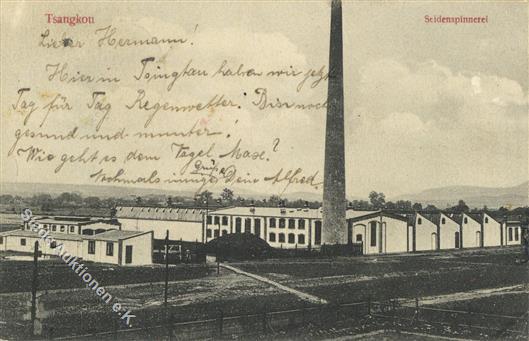 Tsangkou
Seidenspinnerei
Lieber Hermann!
Hier in Tsingtau haben wir jetzt
Tag für Tag Regenwetter. Bist noch
gesund und munter!
Wie geht es dem Vogel Max?
Nochmals innige Grüße Dein Alfred.
Städel Auktionshaus e.K.